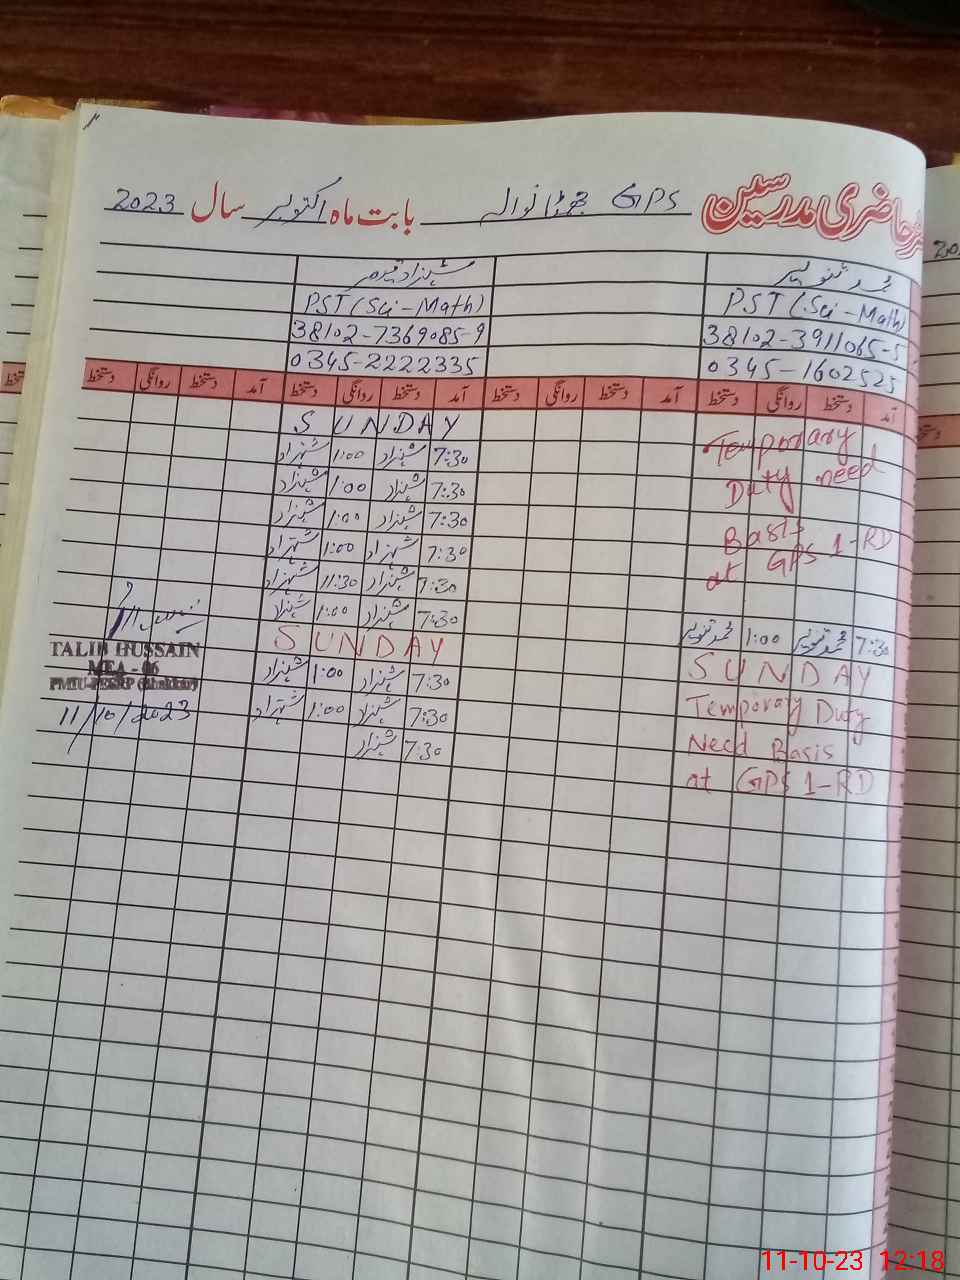 رجسٹر حاضری مدرسین GPS بابت ماہ اکتوبر سال 2023
محمد تنویر
PST (Sci-Math) PST (Sci-Math)
38102-3911065-5 38102-7369085-9
0345-1602525 0345-2222335
آمد دستخط روانگی دستخط دستخط روانگی دستخط آمد دستخط روانگی دستخط آمد دستخط روانگی دستخط
SUNDAY
Temporary
7:30 شہزاد 1:00 شہزاد
Duty need
7:30 شہزاد 1:00 شہزاد
7:30 شہزاد 1:00 شہزاد
Basis
at GPS 1-RD
7:30 شہزاد 1:00 شہزاد
7:30 شہزاد 11:30 شہزاد
7:30 شہزاد 1:00 شہزاد
7:30 محمد تنویر 1:00 محمد تنویر
SUNDAY SUNDAY
7:30 شہزاد 1:00 شہزاد
Temporary Duty
7:30 شہزاد 1:00 شہزاد
Need Basis
7:30 شہزاد
at GPS 1-RD
TALIB HUSSAIN
MEA - 06
11/10/2023
20
دستخط
دستخط
11-10-23 12:18